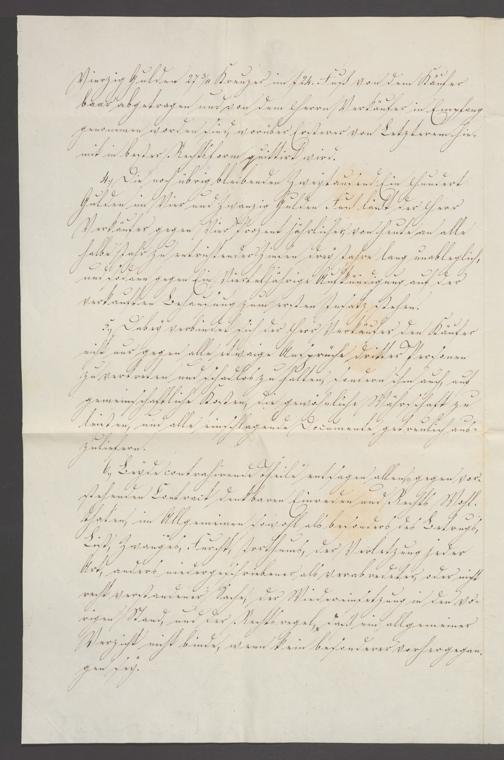 Vierzig Gulden 27 3/4 Kreuzer im f 24. Fuß von dem Käufer
baar abgetragen und von dem Herrn Verkäufer in Empfang
genommen worden sind, worüber Ersterer von Letzterem hie-
mit in bester Rechtsform quittirt wird.
4., Die noch übrig bleibenden Zweytausend Ein Hundert
Gulden im Vier und zwanzig Gulden Fuß läßt der Herr
Verkäufer gegen Vier Prozent jährlicher, von heute an alle
halbe Jahr zu entrichtender Zinsen drei Jahre lang unableglich,
und sodann gegen Ein Vierteljährige Aufkündigung auf der
verkauften Behausung zum ersten Insatz stehen.
5., Dabei verbindet sich der Herr Verkäufer den Käufer
nicht nur gegen alle etwaige Ansprüche dritter Personen
zu vertreten und schadlos zu halten, sondern ihm auch auf
gemeinschaftliche Kosten die gewöhnliche Währschaft zu
leisten, und alle einschlagende Documente getreulich aus-
zuliefern.
6., Beide contrahirende Theile entsagen allen, gegen vor-
stehenden Contract denkbaren Einreden und Rechts Wohl-
thaten, im Allgemeinen sowohl als besonders des Betrugs,
List, Zwanges, Furcht, Irrthums, der Verletzung jeder
Art, anders niedergeschriebener als verabredeter, oder nicht
recht verstandener Sache, der Wiedereinsetzung in den vo-
rigen Stand, und der Rechtsregel, daß ein allgemeiner
Verzicht nicht binde, wenn kein besonderer vorhergegan-
gen sey.